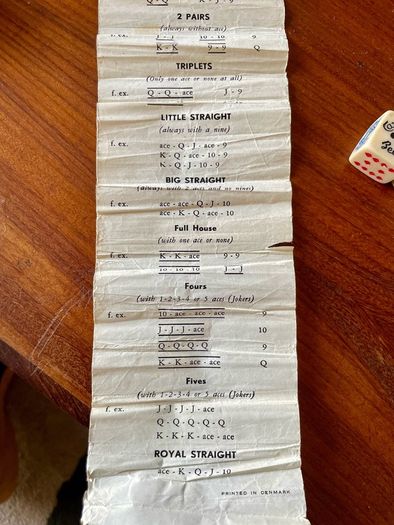 Q - Q K - J 9
2 PAIRS
(always without ace)
f. ex. J - J 10 - 10 9
K - K 9 - 9 Q
TRIPLETS
(Only one ace or none at all)
f. ex. Q - Q - ace J - 9
LITTLE STRAIGHT
(always with a nine)
f. ex. ace - Q - J - ace - 9
K - Q - ace - 10 - 9
K - Q - J - 10 - 9
BIG STRAIGHT
(always with 2 aces and no nines)
f. ex. ace - ace - Q - J - 10
ace - K - Q - ace - 10
Full House
(with one ace or none)
f. ex. K - K - ace 9 - 9
10 - 10 - 10 J - J
Fours
(with 1-2-3-4 or 5 aces (Jokers)
f. ex. 10 - ace - ace - ace 9
J - J - J - ace 10
Q - Q - Q - Q 9
K - K - ace - ace Q
Fives
(with 1-2-3-4 or 5 aces (Jokers)
f. ex. J - J - J - J - ace
Q - Q - Q - Q - Q
K - K - K - ace - ace
ROYAL STRAIGHT
ace - K - Q - J - 10
PRINTED IN DENMARK